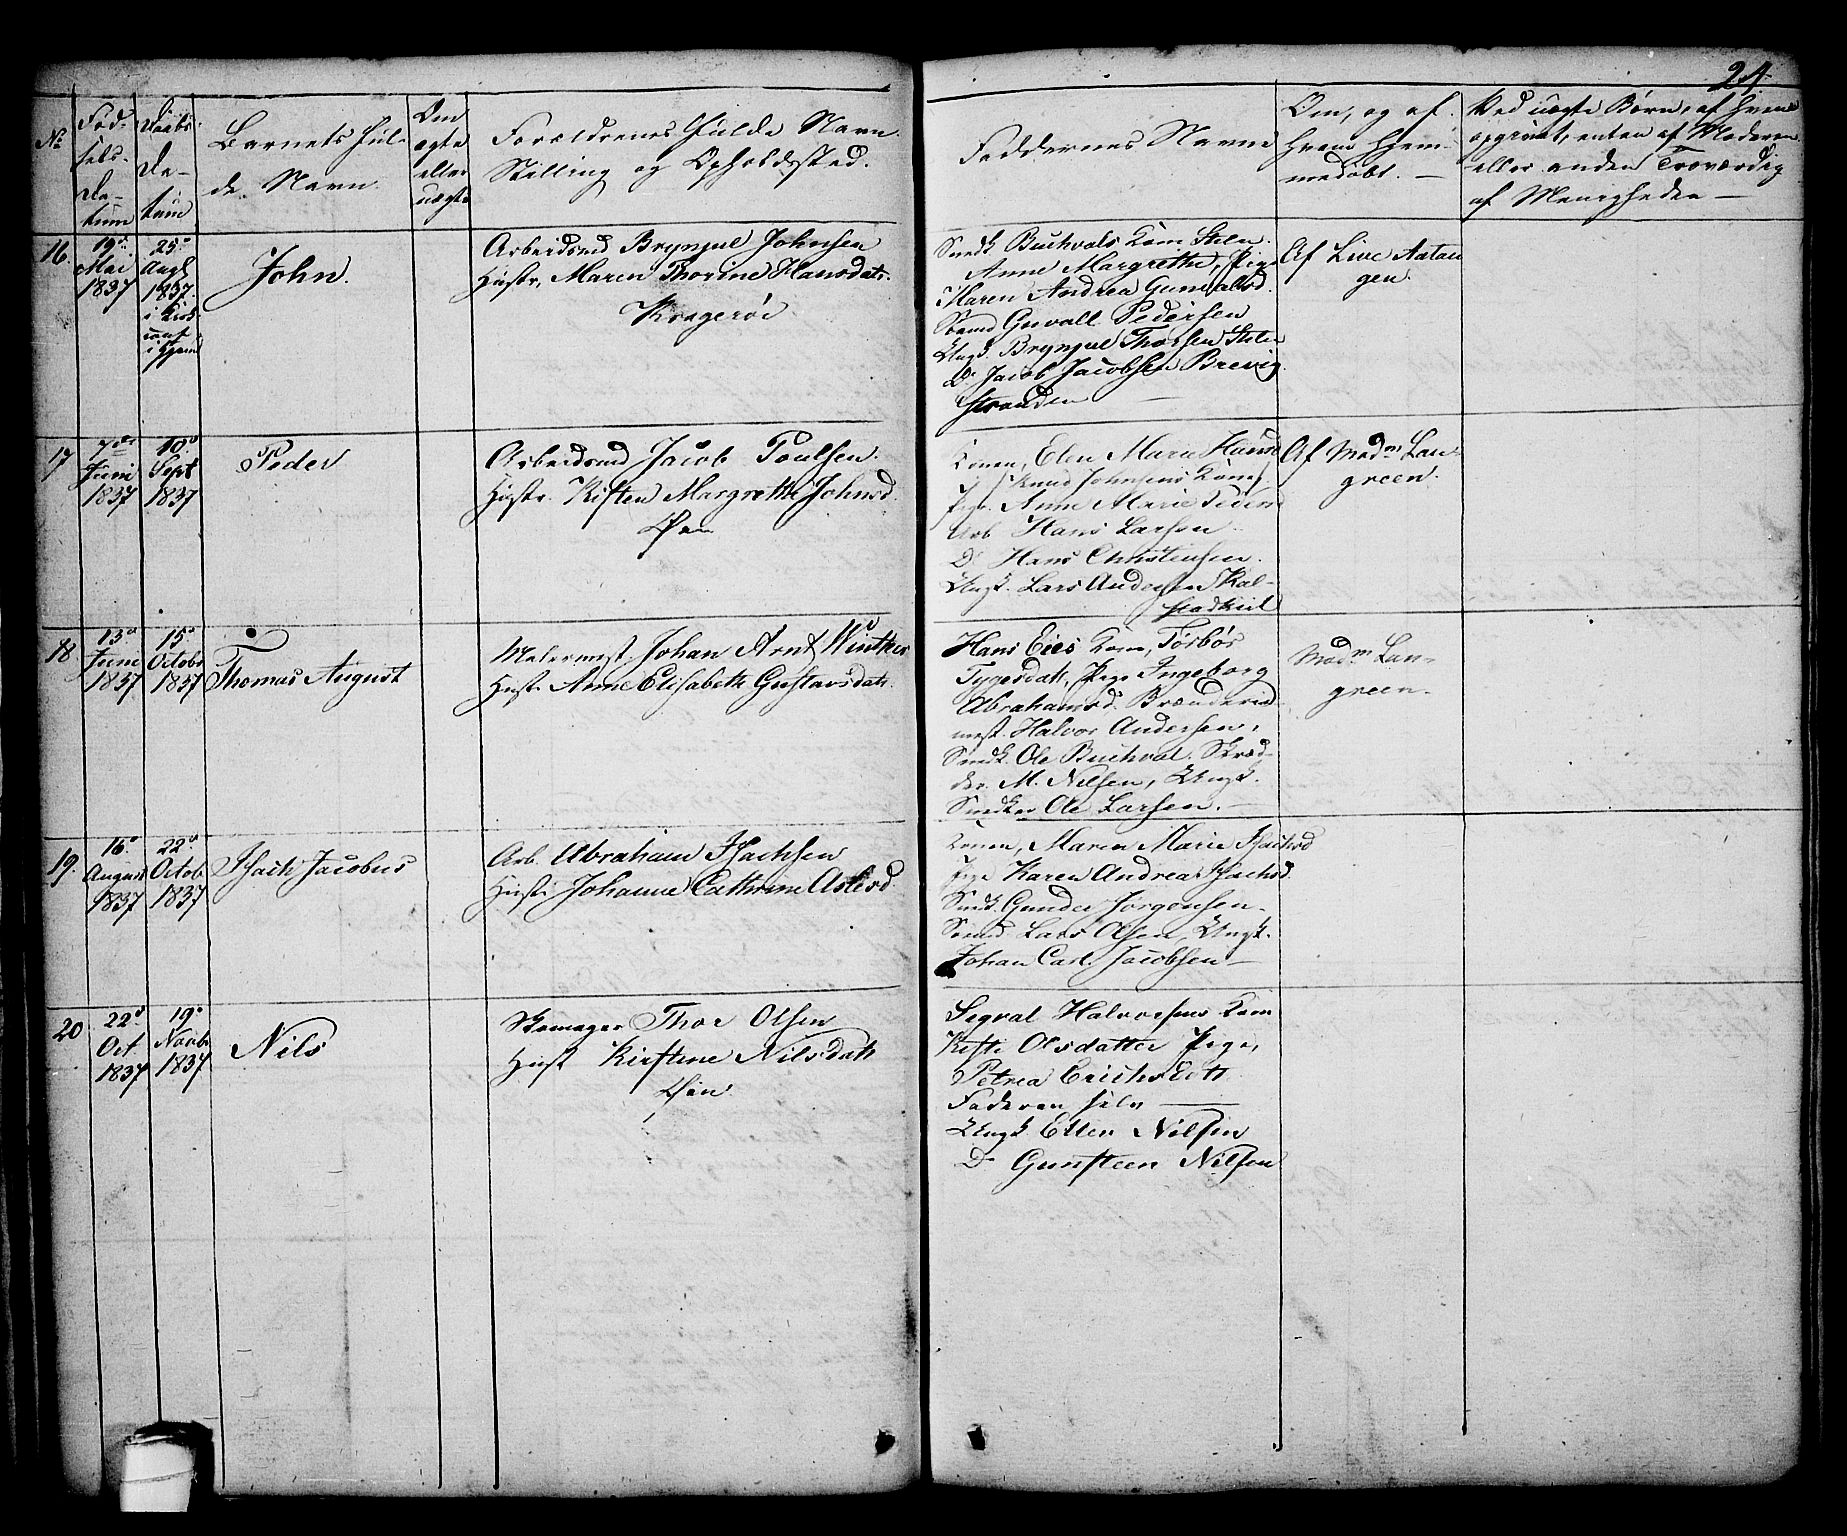 24
No
Fød-
sels-
Da-
tum
Daabs
Da-
tum
Barnets ful-
de Navn
Om
ægte
eller
uægte
Forældrenes fulde Navn
Stilling og Opholdssted.
Faddernes Navne
Om, og af
hvem hjem-
medøbt. —
Ved uægte Børn, af hvem
opgivet, enten af Moderen
eller anden Troværdig
af Menigheden —
16.
19de
Mai
1837
25de
Augt
1837
i Kirk
i hjem
John.
Arbeidsmd Brynjul Johnsen
Hustr. Maren Thorine Hansdatr.
Kragerøe
Snedk Buchvals Kone Stilen
Anne Margrethe, Pige
Maren Andrea Gunvalsd.
Sømd Guvall Pedersen
Ungk. Brynjul Thorsen Stilen
Do Jacob Jacobsen Brevig
Stranden —
Af Live Aatan
gen.
17
7de
Juni
1837
10de
Sept
1837
Peder
Arbeidsmd Jacob Poulsen.
Hustr. Kisten Margrethe Johnsd.
Øen
Konen, Elen Marie Hansd
Knud Johnsens Kone,
Pige. Anne Marie Peders
Arb Hans Larsen
Do Hans Christensen.
Ungk. Lars Andersen Kal-
stadkiil
Af Madm Lan-
green.
18
13de
Juni
1837
15de
Octobr
1837
Thomas August
Malermest. Johan Arnt Winther
Hust. Anne Elisabeth Gustavsdatr.
Hans Eies Kone, Torbør
Tygesdatr, Pige Ingeborg
Abrahamsd. Brænderie
mest. Halvor Andersen,
Snedk. Ole Buchval. Skræd-
der. M. Nilsen, Ungk.
Snedker Ole Larsen. —
Madm. Lan-
green.
19.
16de
August
1837
22de
Octob
1837
Isach Jacobus
Arb. Abraham Isachsen
Hustr. Johanne Cathrine Aslesd.
Konen, Maren Marie Isachsd
Pige Karen Andrea Isachsd.
Snedk. Gunder Jørgensen
Sømd. Lars Olsen, Ungk.
Johan Carl Jacobsen —
20
22de
Oct
1837
19de
Novbr
1837
Nils
Skomager Thor Olsen
Hust Kirstine Nilsdatr
Øen.
Segval Halvorsens Kone
Kisti Olsdatter Pige,
Petrea Erichsdtr
Faderen selv —
Ungk. Ellen Nilsen
Do Gunsteen Nilsen